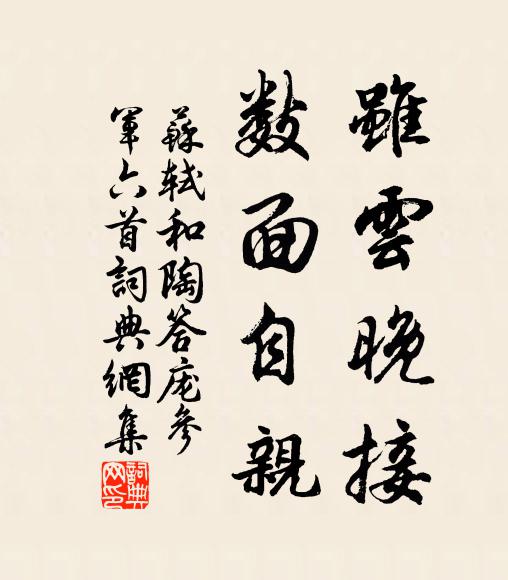 雖雲晚接
數面自親
蘇軾和陶答庞參
軍六首詞典網集
詞典
网印